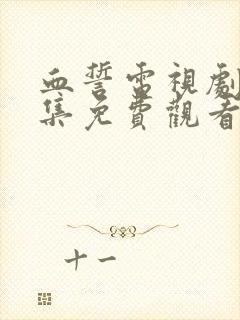 血誓電視劇
集免費觀看
十一